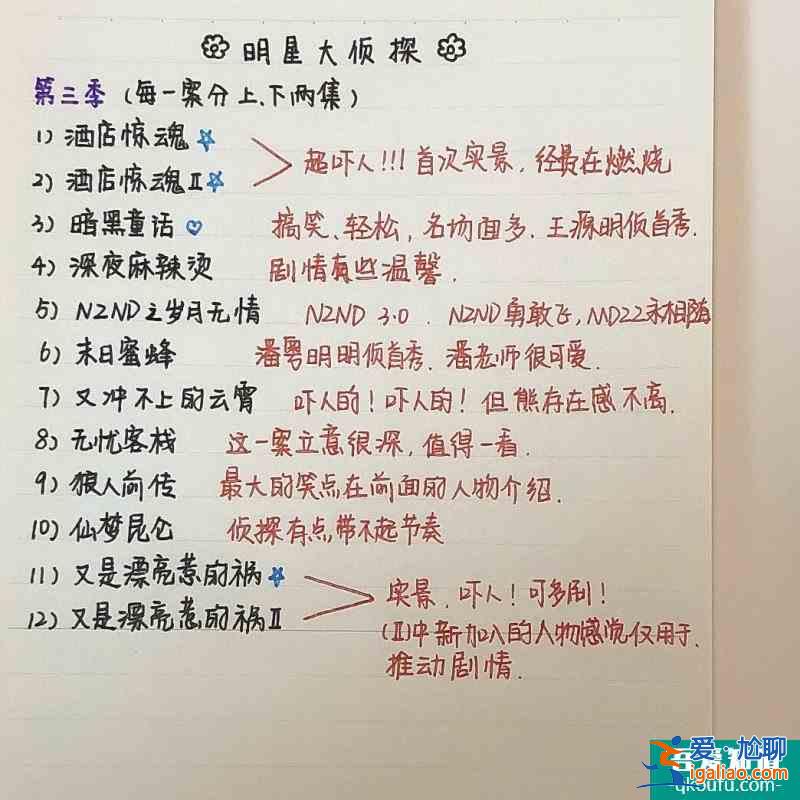 明星大侦探
第三季（每一案分上、下两集）
1) 酒店惊魂
2) 酒店惊魂Ⅱ
超吓人!!! 首次实景，经费在燃烧
3) 暗黑童话 搞笑、轻松，名场面多．王源明侦首秀．
4) 深夜麻辣烫 剧情有些温馨．
5) NZND之岁月无情 NZND 3.0．NZND勇敢飞，MDZZ永相随
6) 末日蜜蜂 潘粤明明侦首秀．潘老师很可爱．
7) 又冲不上的云霄 吓人的！吓人的！但熊存在感不高．
8) 无忧客栈 这一案立意很深，值得一看．
9) 狼人前传 最大的笑点在前面的人物介绍．
10) 仙梦昆仑 侦探有点带不起节奏
11) 又是漂亮惹的祸
12) 又是漂亮惹的祸Ⅱ
实景．吓人！可多刷！
(Ⅱ)中新加入的人物感觉仅用于．
推动剧情．
爱尬聊
igaliao.com
qk5ufu.com